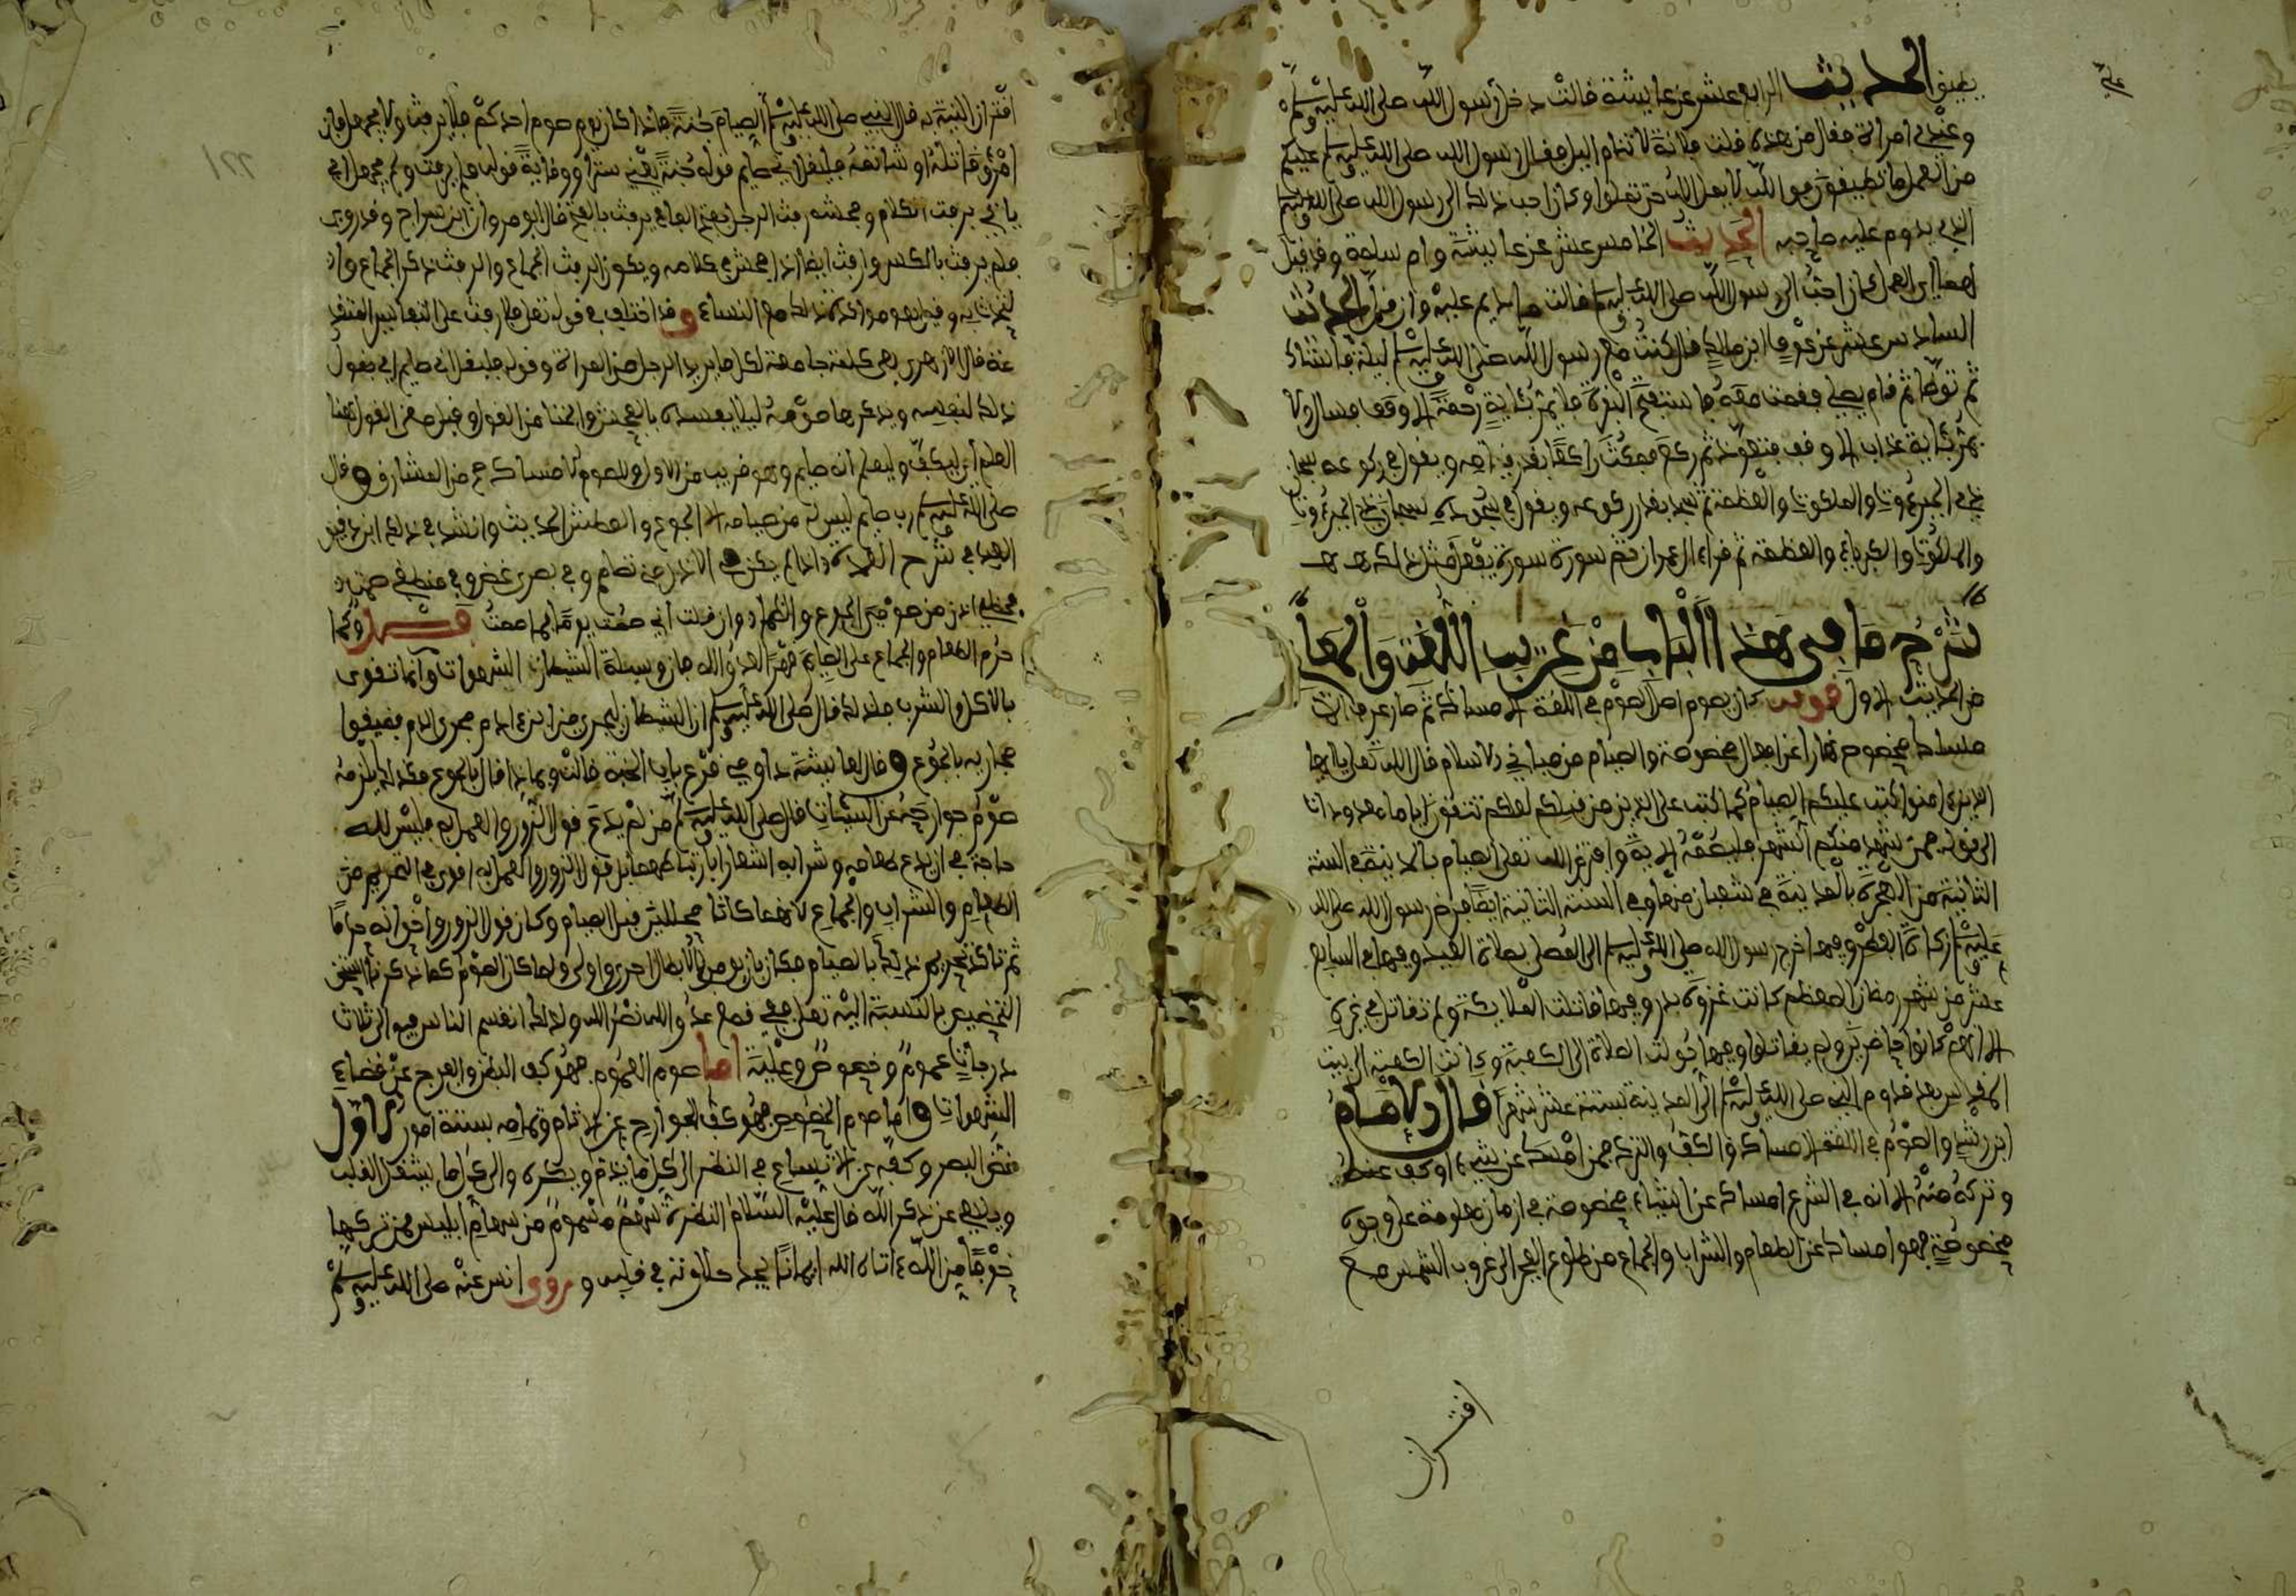 يطيق الحديث الرابع عشر عن عايشة قالت دخل رسول الله صلى الله عليه وسلم
وعندي امراة فقال من هذه قلت فلانة لا تنام اليل فقال رسول الله صلى الله عليه وسلم عليكم
من العمل ما تطيقون فوالله لا يمل الله حتى تملوا وكان احب ذلك الى رسول الله صلى الله عليه وسلم
الذي يدوم عليه صاحبه الحديث الخامس عشر عن عايشة وام سلمة وقد قيل
لهما اي العمل كان احب الى رسول الله صلى الله عليه وسلم فقالت ما ديم عليه وان قل الحديث
السادس عشر عن عوف ابن مالك قال كنت مع رسول الله صلى الله عليه وسلم ليلة فاستاك
ثم توضا ثم قام يصلي فقمت معه فاستفتح البقرة فلا يمر بئاية رحمة الا وقف فسال ولا
يمر بئاية عذاب الا وقف فتعوذ ثم ركع فمكث راكعا بقدر قيامه ويقول في ركوعه سبحان
ذي الجبروت والملكوت والعظمة ثم سجد بقدر ركوعه ويقول في سجوده سبحان ذي الجبروت
والملكوت والكبرياء والعظمة ثم قراء ال عمران ثم سورة سورة يفعل مثل ذلك
شرح ما في هذا الباب من غريب اللغة والمعاني
من الحديث الاول قوله كان يصوم اصل الصوم في اللغة الامساك ثم صار عرفا
ملساك مخصوص نهارا عن افعال مخصوصة والصيام من مباني الاسلام قال الله تعلى يا ايها
الذين ءامنوا كتب عليكم الصيام كما كتب على الذين من قبلكم لعلكم تتقون اياما معدودات
الى قوله فمن شهد منكم الشهر فليصمه الاية وافترض الله تعلى الصيام بالمدينة في السنة
الثانية من الهجرة بالمدينة في شعبان منها وفي السنة الثانية ايضا فرض رسول الله صلى الله
عليه وسلم زكاة الفطر وفيها خرج رسول الله صلى الله عليه وسلم الى المصلى بصلاة العيد وفيها في السابع
عشر من شهر رمضان المعظم كانت غزوة بدر وفيها قاتلت الملايكة ولم تقاتل في غيره
الا انهم كانوا حاضرين ولم يقاتلوا وفيها حولت الصلاة الى الكعبة وكانت الكعبة الى بيت
المقدس بعد قدوم النبي صلى الله عليه وسلم الى المدينة بستة عشر شهرا قال الامام
ابن رشد والصوم في اللغة الامساك والكف والترك فمن امسك عن شيء او كف عنه
وتركه منه الا انه في الشرع امساك عن اشياء مخصوصة في ازمان معلومة على وجوه
مخصوصة فهو امساك عن الطعام والشراب والجماع من طلوع الفجر الى غروب الشمس مع
اقتران
اقتران النية به قال النبي صلى الله عليه وسلم الصيام جنة فاذا كان يوم صوم احدكم فلا يرفث ولا يجهل فان
امرؤ قاتله او شاتمه فليقل اني صايم قوله جنة يعني سترا ووقاية قوله فلا يرفث ولم يجهل اي
يا في يرفث الكلام وفحشه رفث الرجل بفتح الفاء يرفث بالضم قال ابو مروان ابن سراج وقد روي
فلم يرفث بالكسر وارفث ايضا اذا افحش في كلامه ويكون الرفث الجماع والرفث ذكر الجماع واد
لتحدث به وقيل هو مذاكرة ذلك مع النساء وقد اختلف في قوله تعلى فلا رفث على التفاسير المتقد
مة قال الازهري هي كلمة جامعة لكل ما يريد الرجل من المراة وقوله فليقل اني صايم اي يقول
ذلك لنفسه ويذكرها صومه ليلا يفسده بالفحش والخنا من القول وقيل معنى القول هنا
العلم اي ليكف وليعلم انه صايم وهو قريب من الاول والصوم لامساك ح من المشارق وقال
صلى الله عليه وسلم رب صايم ليس له من صيامه الا الجوع والعطش الحديث وانشد في ذلك ابن دقيق
العيد في شرح العمدة اذا لم يكن في الاذن مني تصامم وفي بصري غض وفي منطقي صمت
فحظي اذن من صومي الجوع والظما وان قلت اني صمت يوما فما صمت قسم وكما
حرم الطعام والجماع على الصايم قهرا لعدو الله فان وسيلة الشيطان الشهوات وانما تقوى
بالاكل والشرب فلذلك قال صلى الله عليه وسلم ان الشيطان ليجري من ابن ءادم مجرى الدم فضيقوا
مجاريه بالجوع وقال لعايشة داومي قرع باب الجنة قالت وبماذا قال بالجوع فكذلك يلزمه
صوم جوارحه عن السيئات قال صلى الله عليه وسلم من لم يدع قول الزور والعمل به فليس لله
حاجة في ان يدع طعامه وشرابه اشعارا بارتباطهما بل قول الزور والعمل به اقوى في التحريم من
الطعام والشراب والجماع لانهما كانا محللين قبل الصيام وكان قول الزور واخوانه حراما
ثم تاكد تحريم ذلك بالصيام فكان بان يؤمر بالابطال احرى واولى ولما كان الصوم كما ذكرنا
التخصيص بالنسبة اليه تعلى ففي قمع عدو الله نصر الله ولذلك انقسم الناس فيه الى ثلاث
درجات عموم وخصوص وعلية اما صوم العموم فهو كف البطن والفرج عن قضاء
الشهوات واما صوم الخصوص فهو كف الجوارح عن الاثام وتمامه بستة امور الاول
غض البصر وكفه عن الاتساع في النظر الى كل ما يذم ويكره والى كل ما يشغل القلب
ويلهي عن ذكر الله قال عليه السلام النظرة سهم مسموم من سهام ابليس فمن تركها
خوفا من الله ءاتاه الله ايمانا يجد حلاوته في قلبه وروى انس عنه صلى الله عليه وسلم